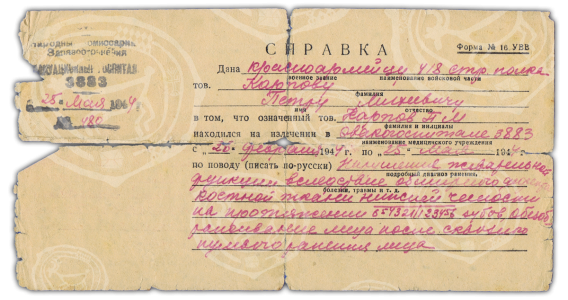 Народный Комиссариат
Здравоохранения
ЭВАКУАЦИОННЫЙ ГОСПИТАЛЬ
3883
„25“ Мая 1944 г.
№ 480
СПРАВКА
Форма № 16 УВВ
Дана красноармейцу 418 стр. полка
военное звание наименование войсковой части
тов. Карпову
фамилия
Петру Михеевичу
имя отчество
в том, что означенный тов. Карпов П М
фамилия и инициалы
находился на излечении в эвакогоспитале 3883
наименование медицинского учреждения
с „20“ февраля 1944 г. по „25“ мая 1944 г.
по поводу (писать по-русски) Нарушение жевательной
подробный диагноз ранения,
функции вследствие
болезни, травмы и т. д.
костной ткани нижней челюсти
на протяжении 654321|123456 зубов. Обезоб
раживание лица после сквозного
пулевого ранения лица